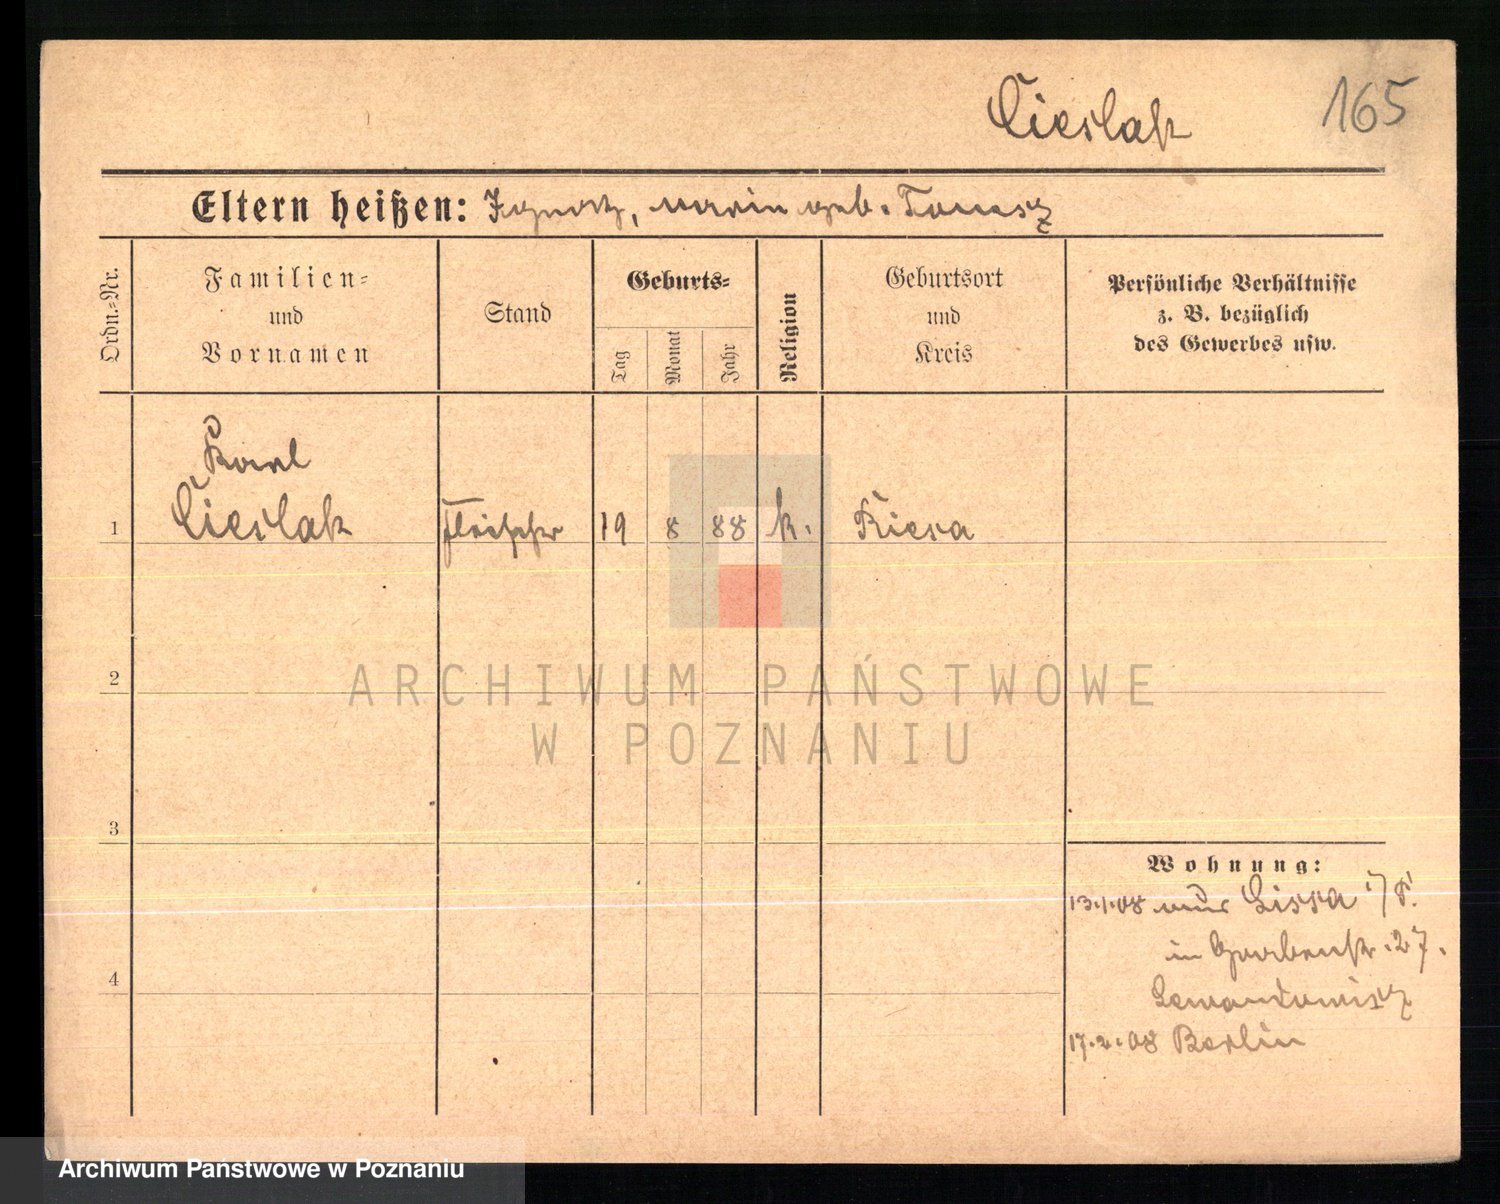 Cieslak 165
Eltern heißen: Ignatz, Marie geb. Tomisz
Ordn.-Nr.
Familien-
und
Vornamen
Stand
Geburts-
Tag
Monat
Jahr
Religion
Geburtsort
und
Kreis
Persönliche Verhältnisse
z. B. bezüglich
des Gewerbes usw.
Karl
1 Cieslak Fleischer 19 8 88 k. Riesa
2
ARCHIWUM PAŃSTWOWE
W POZNANIU
3
Wohnung:
13.1.08 aus Lissa i/P.
in Gerberstr. 27.
17.2.08 Berlin
4
Archiwum Państwowe w Poznaniu